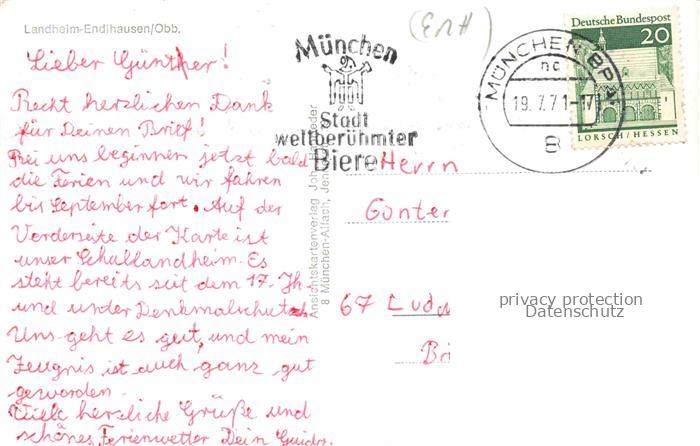 Landheim-Endlhausen/Obb.
Lieber Günther!
Recht herzlichen Dank
für Deinen Brief!
Bei uns beginnen jetzt bald
die Ferien und wir fahren
bis September fort. Auf der
Vorderseite der Karte ist
unser Schullandheim. Es
steht bereits seit dem 17. Jh.
und unter Denkmalschutz.
Uns geht es gut, und mein
Zeugnis ist auch ganz gut
geworden.
Viele herzliche Grüße und
schönes Ferienwetter Dein Guido.
Ansichtskartenverlag
8 München-Allach,
München
Stadt
weltberühmter
Biere
MÜNCHEN BPA
nc
19.7.71-17
8
Deutsche Bundespost
20
LORSCH/HESSEN
Herrn
Günter
67 Lud
privacy protection
Datenschutz